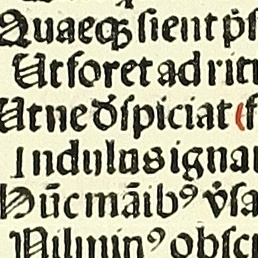 Quaeqꝫ sient p̄s
Ut foret ad ritu
Ut ne d̄spiciat (f
Indulus ignar
Hūc māibꝰ v̓sa
Nil min̓ꝰ obsc